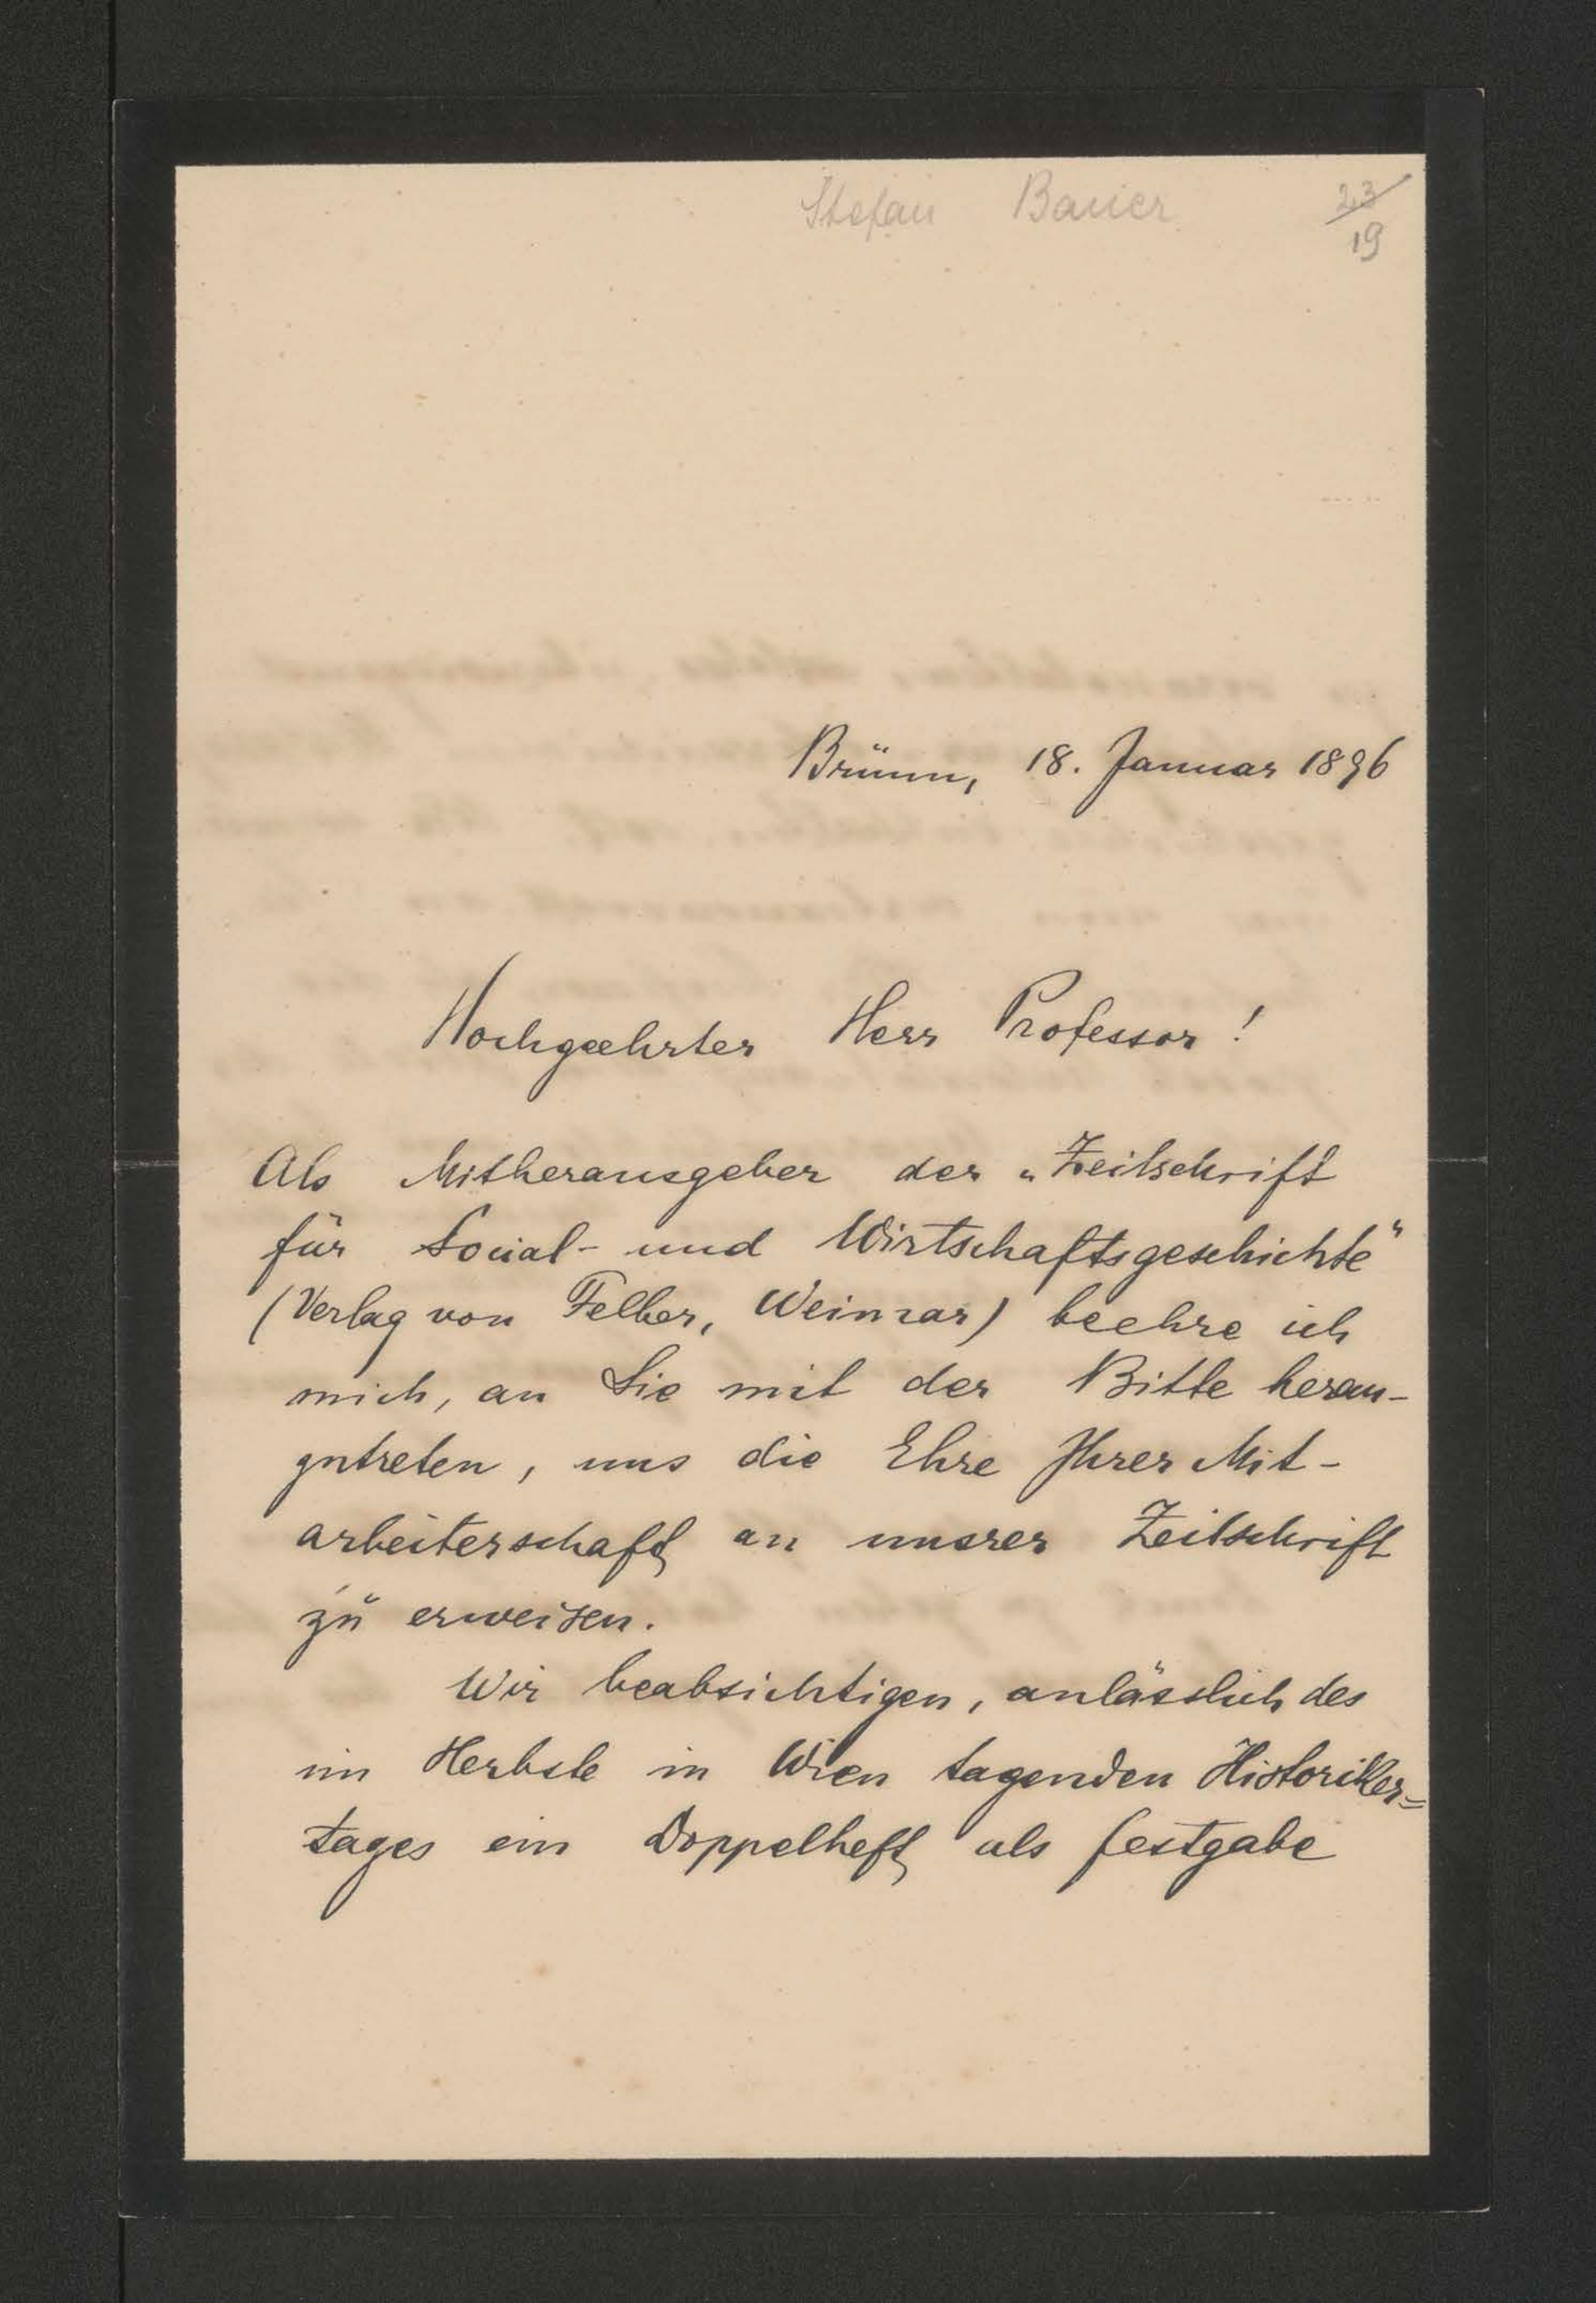 Stefan Bauer 23
19
Brünn, 18. Januar 1896
Hochgeehrter Herr Professor!
Als Mitherausgeber der „Zeitschrift
für Social- und Wirtschaftsgeschichte"
(Verlag von Felber, Weimar) beehre ich
mich, an Sie mit der Bitte heran-
zutreten, uns die Ehre Ihrer Mit-
arbeiterschaft an unserer Zeitschrift
zu erweisen.
Wir beabsichtigen, anlässlich des
im Herbste in Wien tagenden Historiker=
tages ein Doppelheft als Festgabe